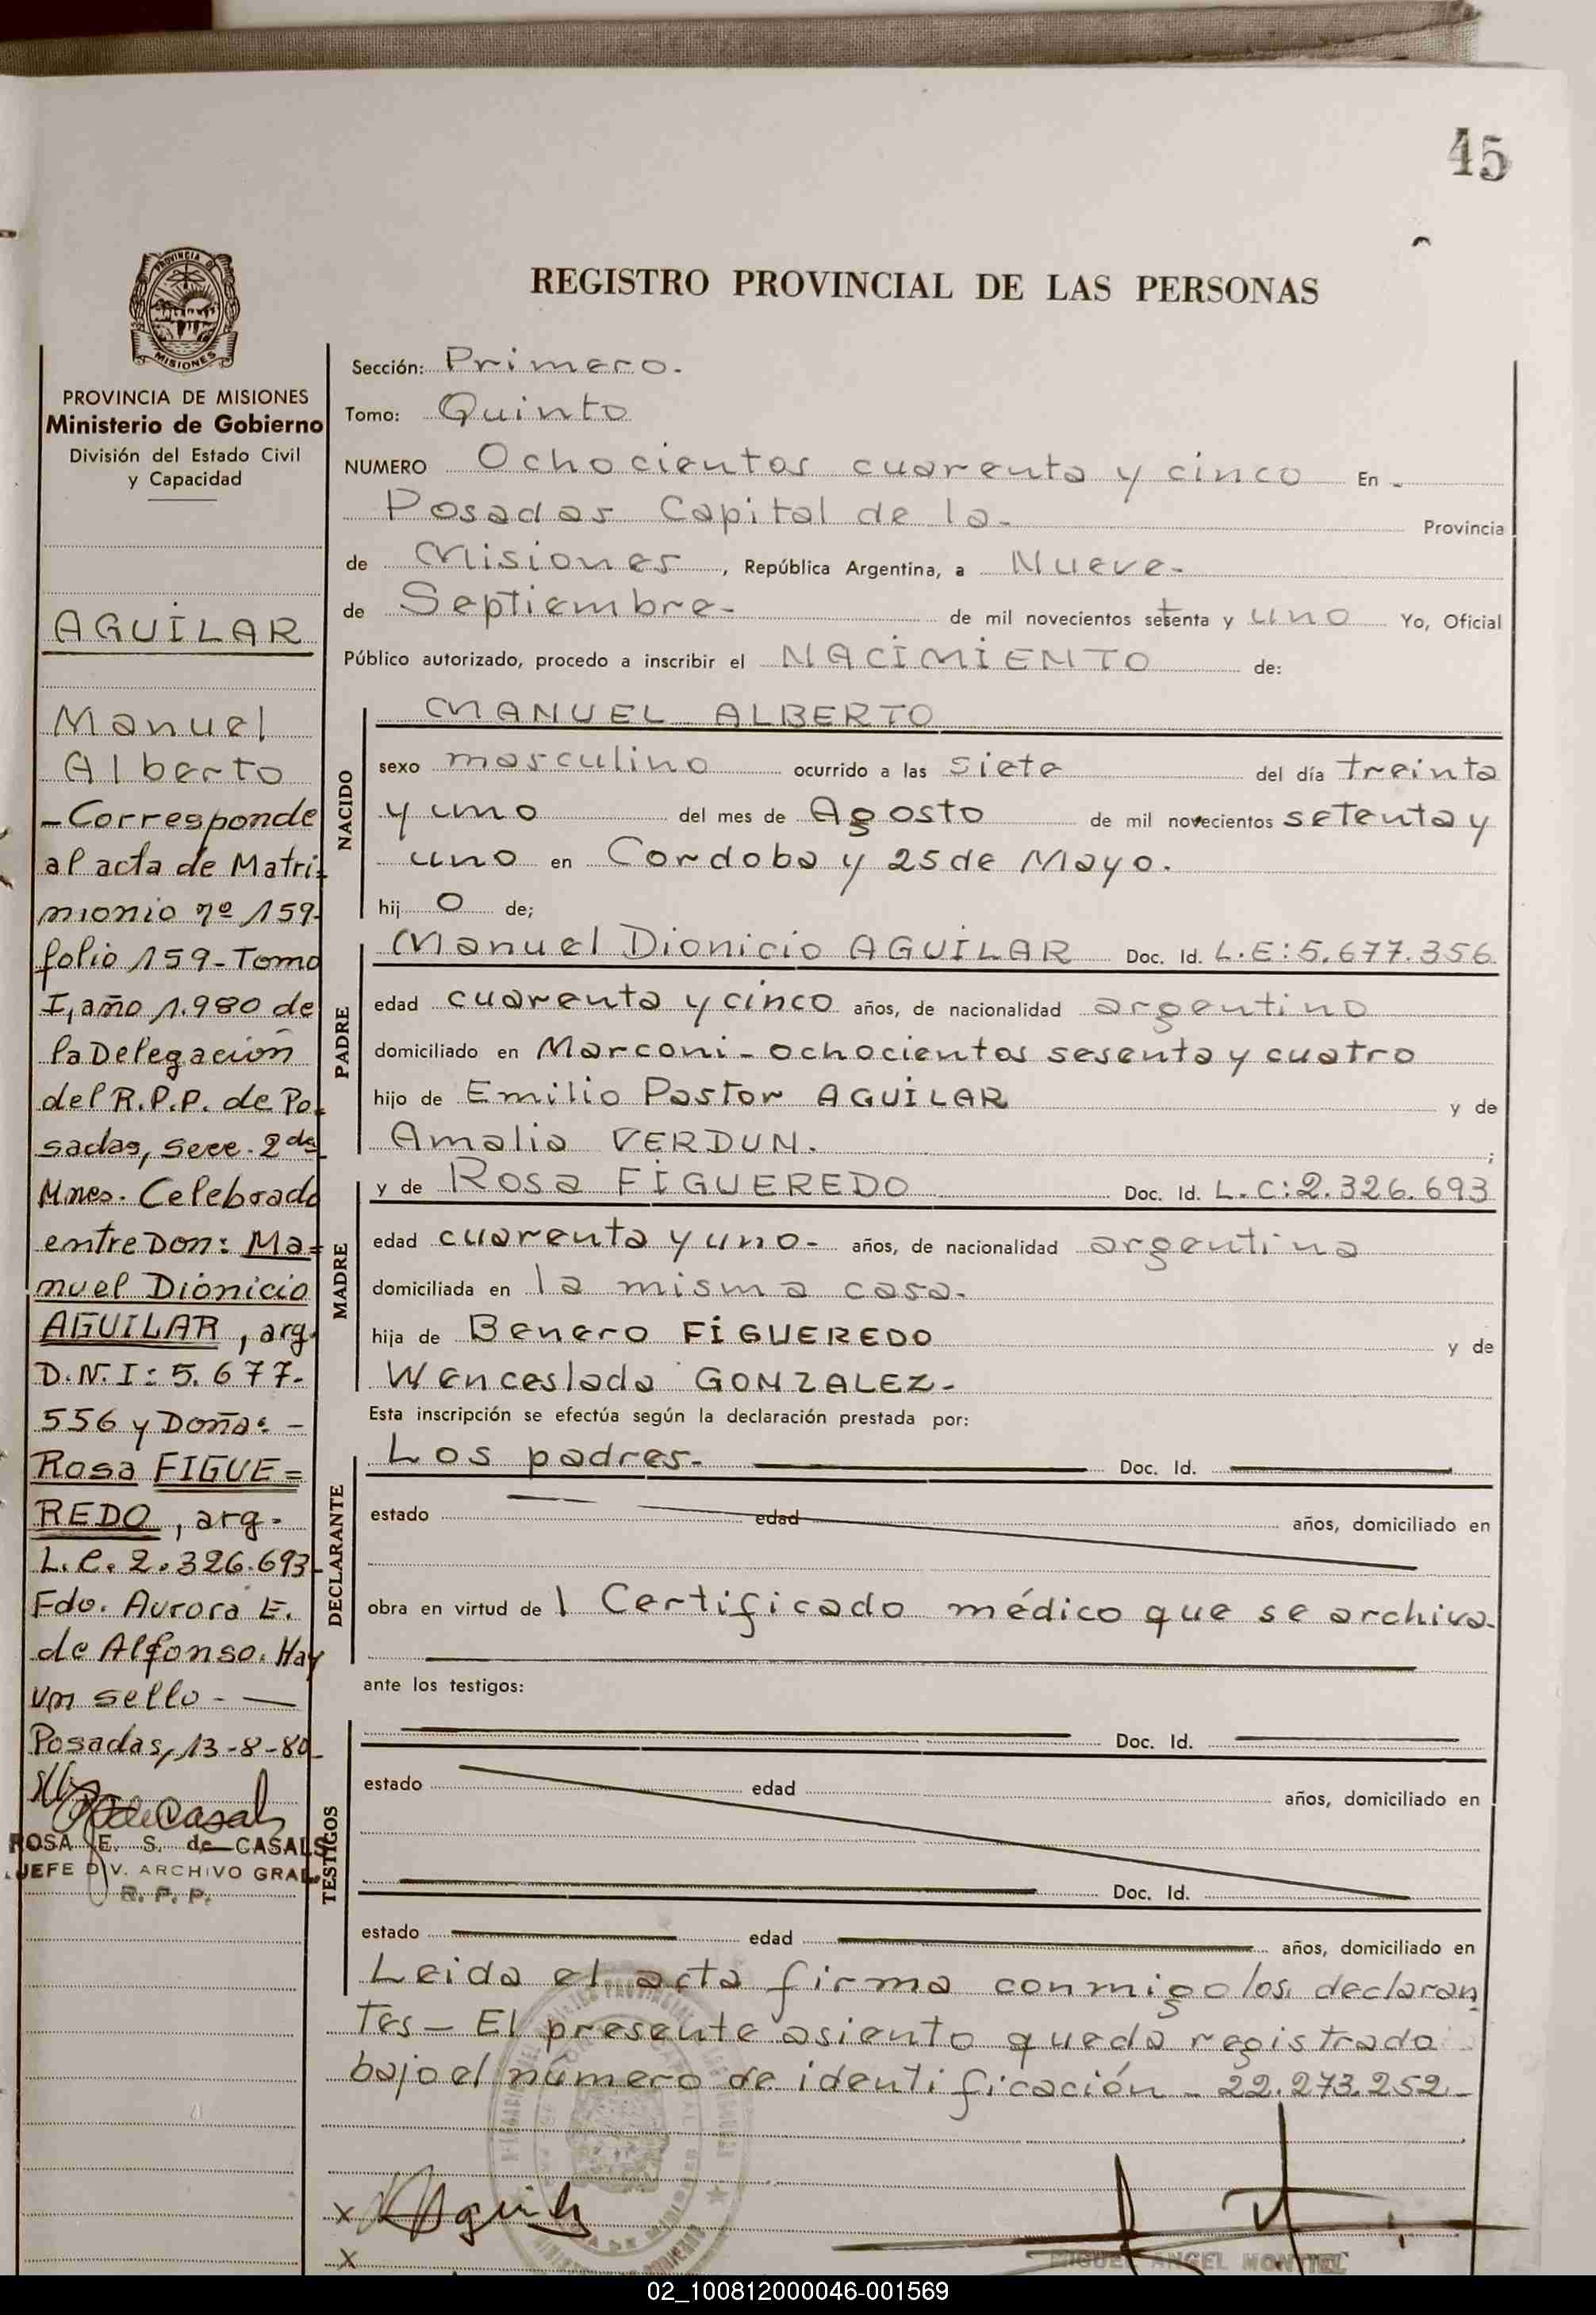 45
REGISTRO PROVINCIAL DE LAS PERSONAS
PROVINCIA DE MISIONES
PROVINCIA DE MISIONES
Ministerio de Gobierno
División del Estado Civil
y Capacidad
AGUILAR
Manuel
Alberto
-Corresponde
al acta de Matri=
monio nº 159-
folio 159-Tomo
I, año 1.980 de
la Delegación
del R.P.P. de Po=
sadas, Secc. 2da
Mnes. Celebrado
entre Don: Ma=
nuel Dionicio
AGUILAR, arg.
D.N.I: 5.677-
556 y Doña: -
Rosa FIGUE=
REDO, arg-
L.C. 2.326.693-
Fdo. Aurora E.
de Alfonso. Hay
un sello - —
Posadas, 13-8-80-
ROSA E. S. de CASALS
JEFE DIV. ARCHIVO GRAL.
R. P. P.
Sección: Primero.
Tomo: Quinto
NUMERO Ochocientos cuarenta y cinco En -
Posadas Capital de la- Provincia
de Misiones, República Argentina, a Nueve-
de Septiembre- de mil novecientos setenta y uno Yo, Oficial
Público autorizado, procedo a inscribir el NACIMIENTO de:
NACIDO
MANUEL ALBERTO
sexo masculino ocurrido a las siete del día treinta
y uno del mes de Agosto de mil novecientos setenta y
uno en Cordoba y 25 de Mayo.
hij o de;
PADRE
Manuel Dionicio AGUILAR Doc. Id. L.E: 5.677.356
edad cuarenta y cinco años, de nacionalidad argentino
domiciliado en Marconi - ochocientos sesenta y cuatro
hijo de Emilio Pastor AGUILAR y de
Amalia VERDUN. ;
MADRE
y de Rosa FIGUEREDO Doc. Id. L.C: 2.326.693
edad cuarenta y uno- años, de nacionalidad argentina
domiciliada en la misma casa.
hija de Benero FIGUEREDO y de
Wenceslada GONZALEZ-
Esta inscripción se efectúa según la declaración prestada por:
DECLARANTE
Los padres. Doc. Id.
estado edad años, domiciliado en
obra en virtud de 1 Certificado médico que se archiva.
ante los testigos:
TESTIGOS
Doc. Id.
estado edad años, domiciliado en
Doc. Id.
estado edad años, domiciliado en
Leida el acta firma conmigo los declaran
tes- El presente asiento queda registrado
bajo el número de identificación - 22.273.252-
x Aguilar
x
MIGUEL ANGEL MONTIEL
02_100812000046-001569